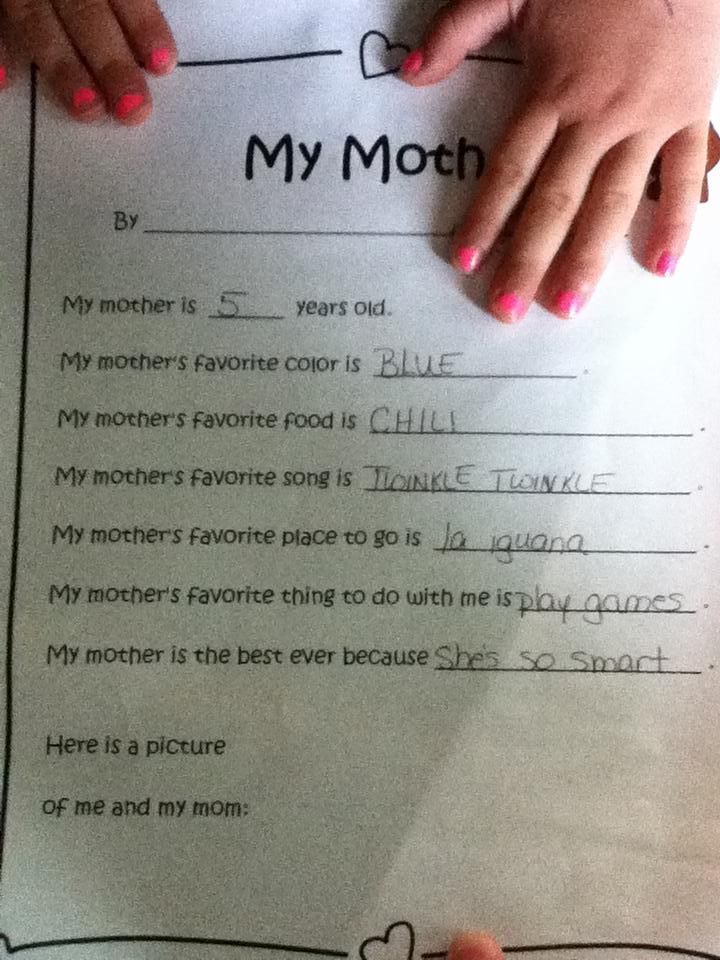 My Moth
By
My mother is 5 years old.
My mother's favorite color is BLUE.
My mother's favorite food is CHILI.
My mother's favorite song is TWINKLE TWINKLE.
My mother's favorite place to go is la iguana.
My mother's favorite thing to do with me is play games.
My mother is the best ever because She's so smart.
Here is a picture
of me and my mom: